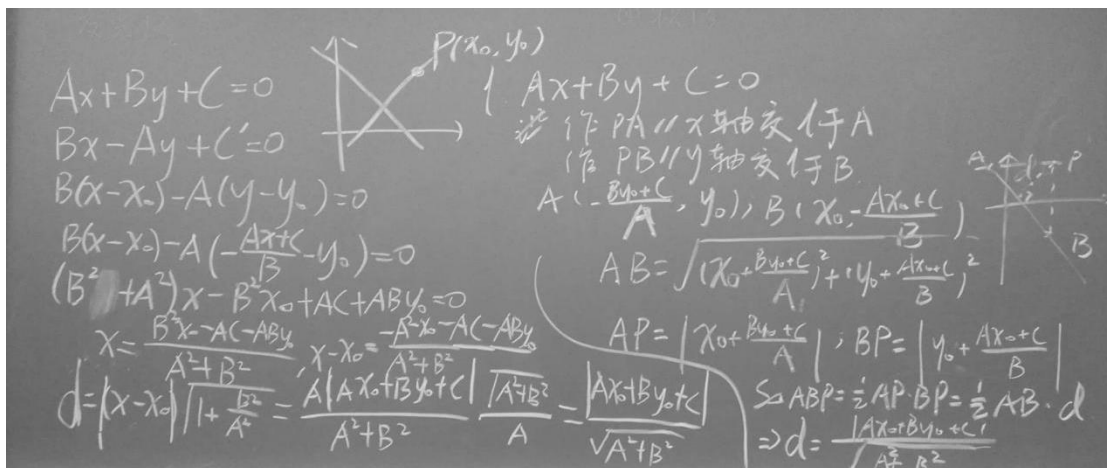 P(x₀, y₀)
Ax+By+C=0
Bx-Ay+C'=0
B(x-x₀)-A(y-y₀)=0
B(x-x₀)-A(-\frac{Ax+C}{B}-y₀)=0
(B²+A²)x-B²x₀+AC+ABy₀=0
x=\frac{B²x₀-AC-ABy₀}{A²+B²}, x-x₀=\frac{-A²x₀-AC-ABy₀}{A²+B²}
d=|x-x₀|\sqrt{1+\frac{B²}{A²}}=\frac{A|Ax₀+By₀+C|}{A²+B²}\frac{\sqrt{A²+B²}}{A}=\frac{|Ax₀+By₀+C|}{\sqrt{A²+B²}}
l Ax+By+C=0
作 PA//x轴交l于A
作 PB//y轴交l于B
A(-\frac{By₀+C}{A}, y₀), B(x₀, -\frac{Ax₀+C}{B})
A d P
B
AB=\sqrt{(x₀+\frac{By₀+C}{A})²+(y₀+\frac{Ax₀+C}{B})²}
AP=|x₀+\frac{By₀+C}{A}|, BP=|y₀+\frac{Ax₀+C}{B}|
S△ABP=\frac{1}{2}AP·BP=\frac{1}{2}AB·d
⇒d=\frac{|Ax₀+By₀+C|}{\sqrt{A²+B²}}